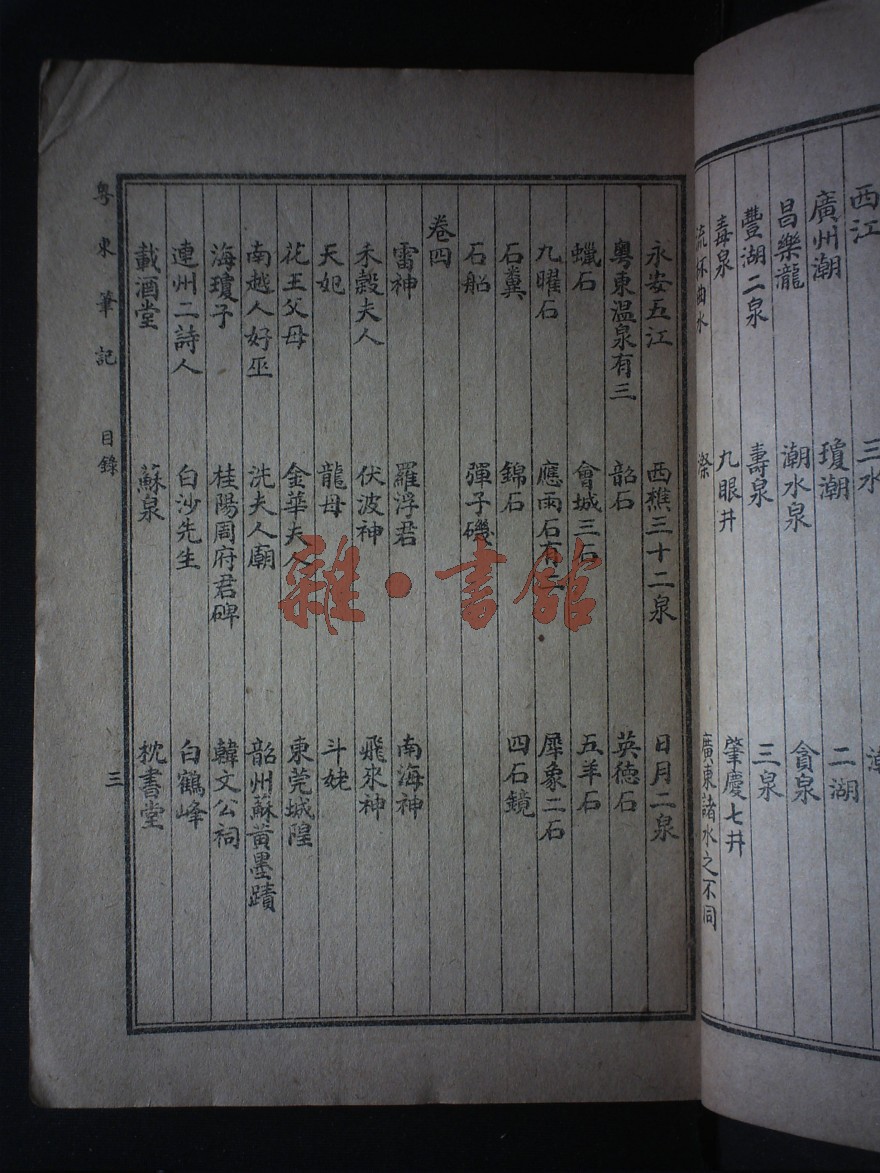 西江 三水
廣州潮 瓊潮 二湖
昌樂瀧 潮水泉 貪泉
豐湖二泉 壽泉 三泉
毒泉 九眼井 肇慶七井
流杯曲水 漈 廣東諸水之不同
永安五江 西樵三十二泉 日月二泉
粵東温泉有三 韶石 英德石
蠟石 會城三石 五羊石
九曜石 應雨石有 犀象二石
石糞 錦石 四石鏡
石船 彈子磯
卷四
雷神 羅浮君 南海神
禾穀夫人 伏波神 飛來神
天妃 龍母 斗姥
花王父母 金華夫人 東莞城隍
南越人好巫 洗夫人廟 韶州蘇黃墨蹟
海瓊子 桂陽周府君碑 韓文公祠
連州二詩人 白沙先生 白鶴峰
載酒堂 蘇泉 枕書堂
粵東筆記 目錄 三
雜·書館